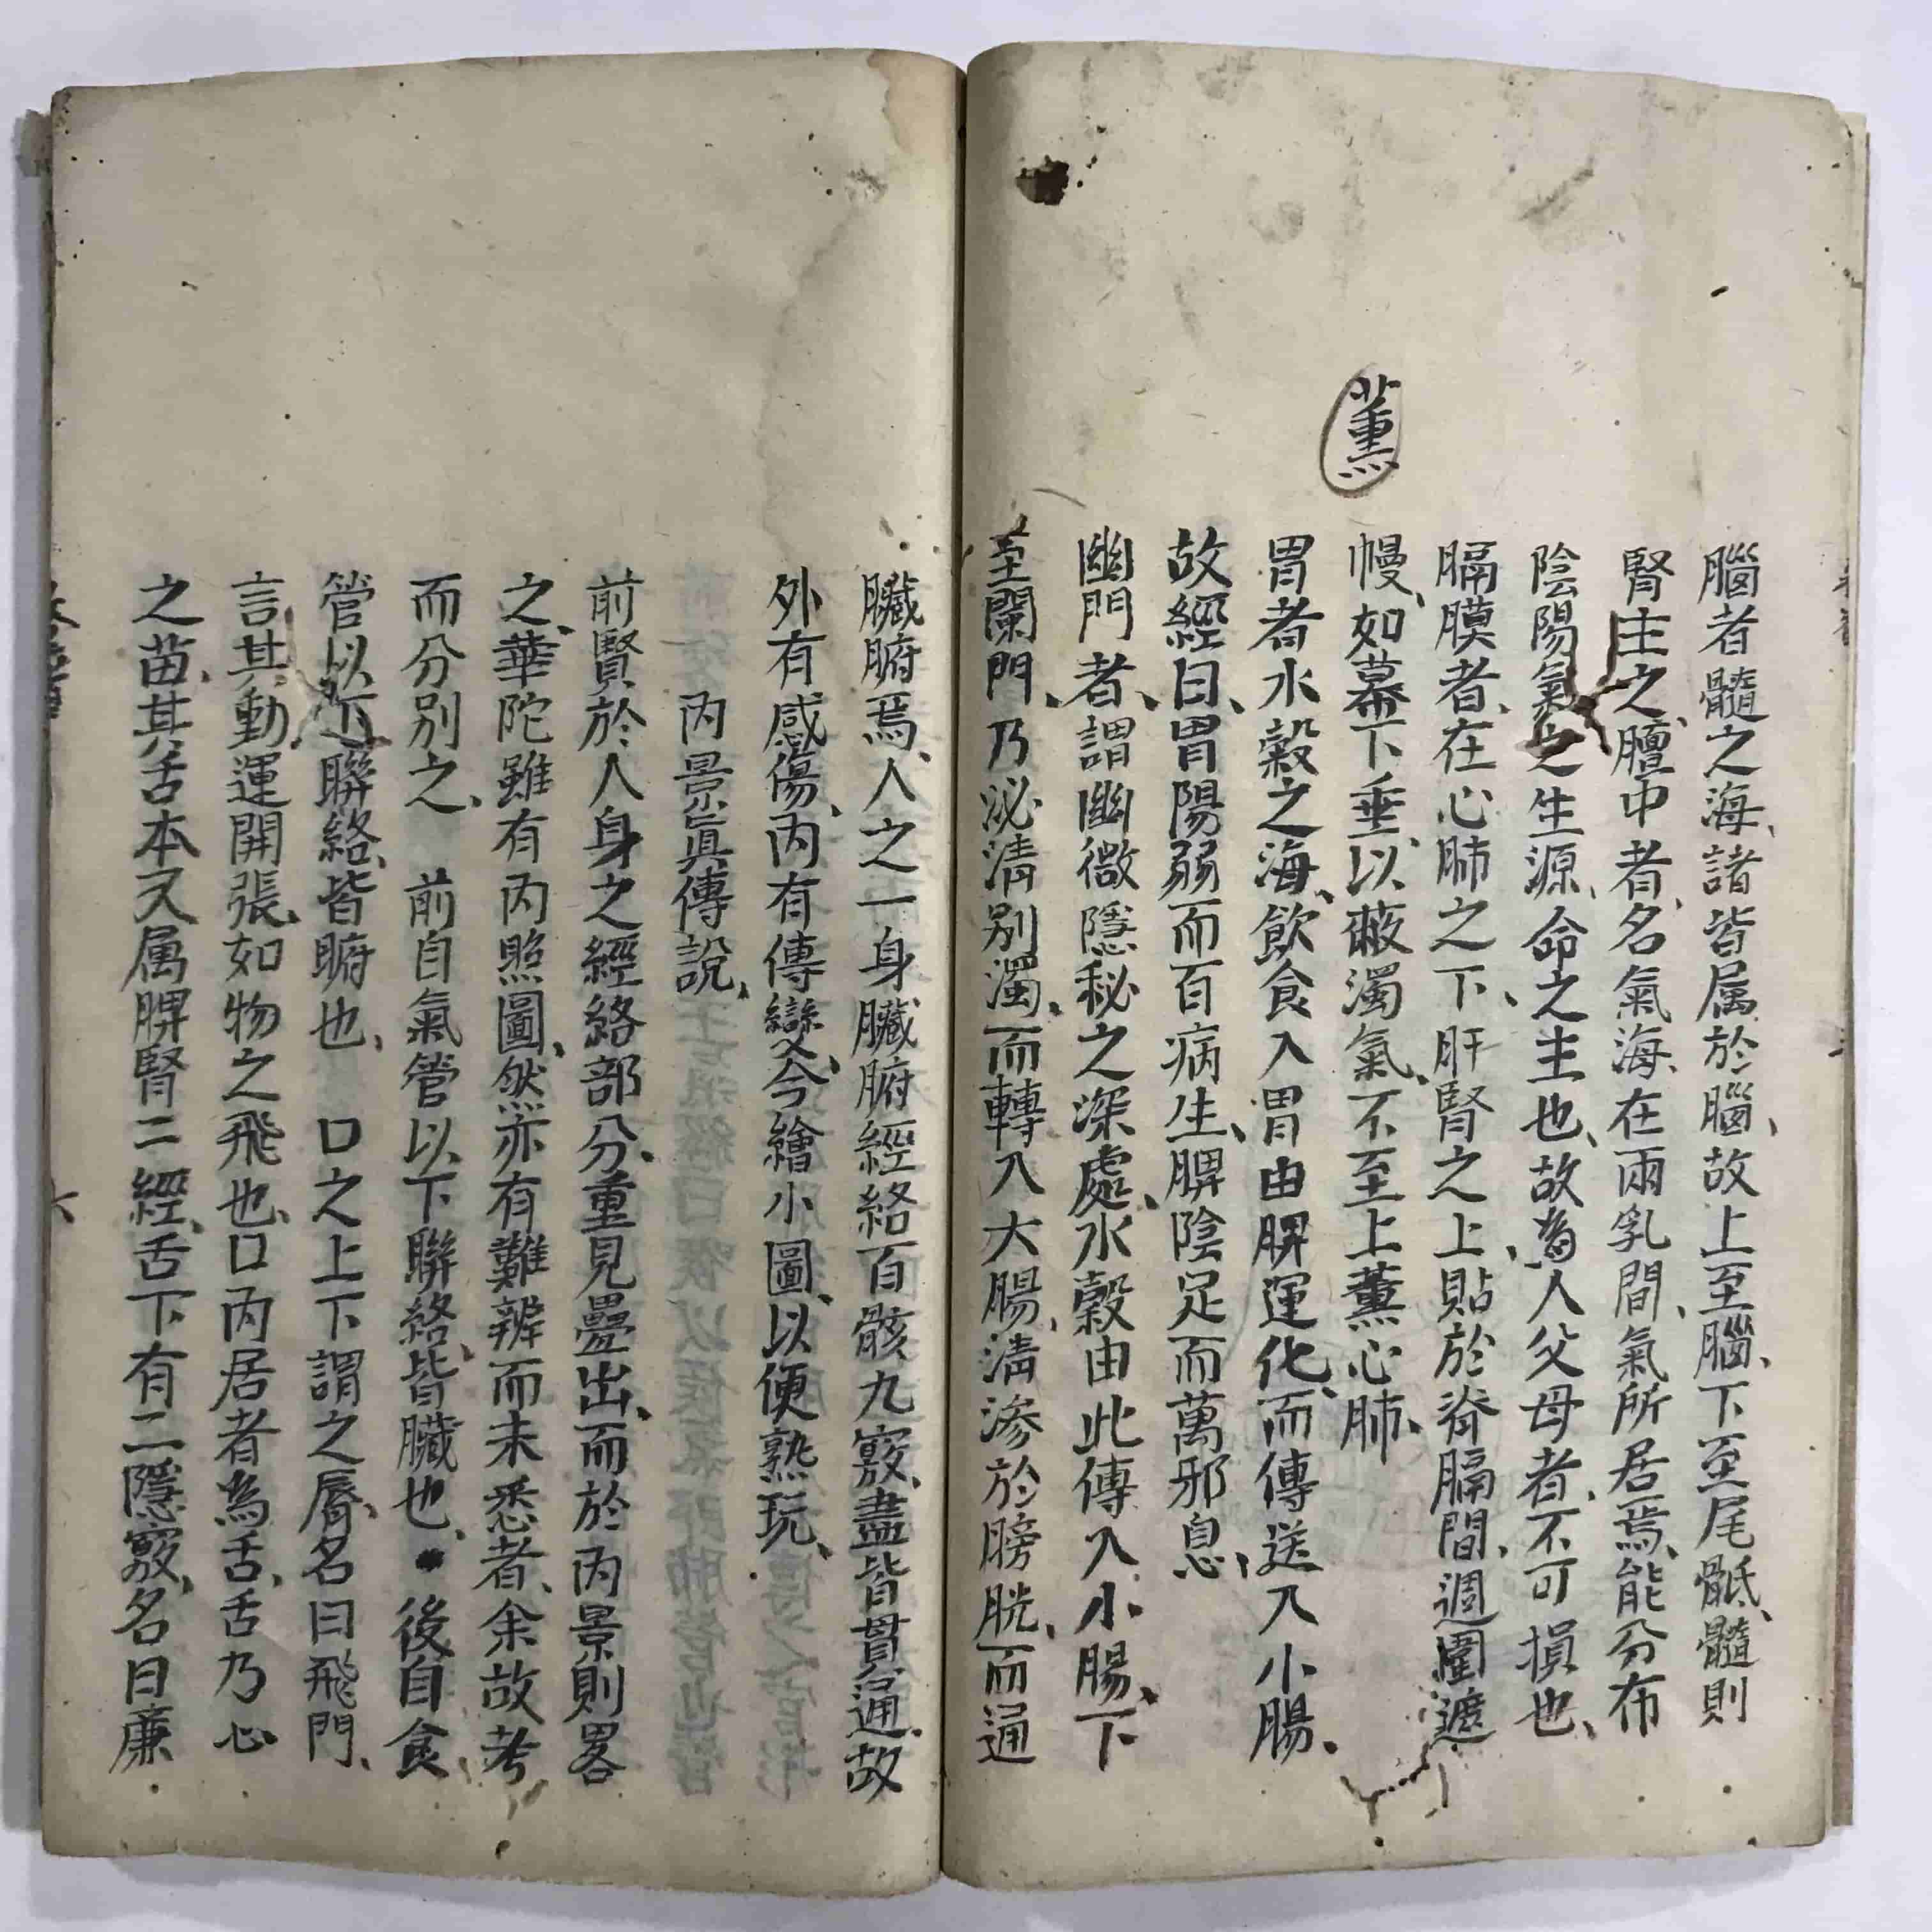 薰
腦者髓之海、諸皆属於腦、故上至腦、下至尾骶、髓則
腎主之、膻中者、名氣海、在兩乳間、氣所居焉、能分布
陰陽氣之生源、命之主也、故為人父母者、不可損也、
膈膜者、在心肺之下、肝腎之上、貼於脊膈間、週圍遮
幔、如幕下垂、以蔽濁氣、不至上薰心肺、
胃者水穀之海、飲食入胃由脾運化、而傳送入小腸、
故經曰、胃陽弱而百病生、脾陰足而萬邪息、
幽門者、謂幽微隱秘之深處、水穀由此傳入小腸、下
至闌門、乃泌清別濁、而轉入大腸、清滲於膀胱、而通
臟腑焉、人之一身臟腑經絡百骸九竅、盡皆貫通、故
外有感傷、內有傳變、今繪小圖、以便熟玩、
內景真傳說、
前賢於人身之經絡部分、重見疊出、而於內景則畧
之、華陀雖有內照圖、然亦有難辨而未悉者、余故考
而分別之、前自氣管以下聯絡、皆臟也、後自食
管以下聯絡、皆腑也、口之上下謂之脣、名曰飛門、
言其動運開張、如物之飛也、口內居者為舌、舌乃心
之苗、其舌本又属脾腎二經、舌下有二隱竅、名曰廉
六